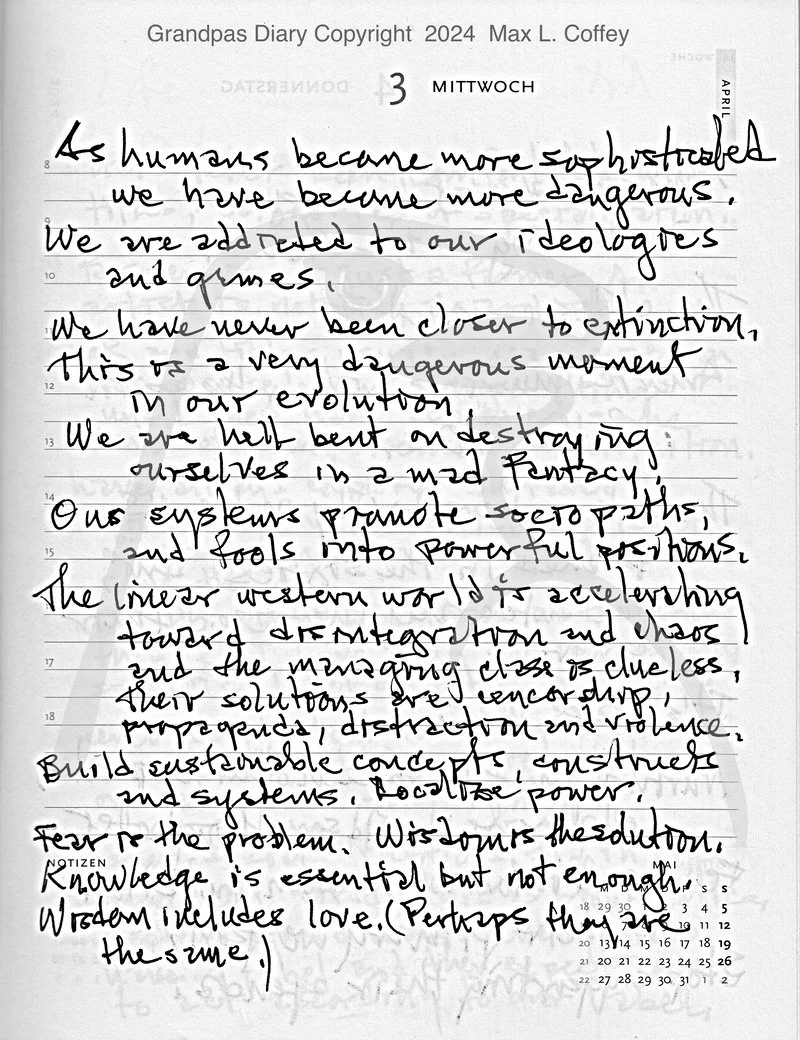 Grandpas Diary Copyright 2024 Max L. Coffey
3 MITTWOCH
APRIL
As humans became more sophisticated
we have become more dangerous.
We are addicted to our ideologies
and games.
We have never been closer to extinction,
This is a very dangerous moment
in our evolution.
We are hell bent on destroying
ourselves in a mad Fantacy.
Our systems promote sociopaths,
and fools into powerful positions.
The linear western world is accelerating
toward disintegration and chaos
and the managing class is clueless,
Their solutions are cencorship,
propaganda, distraction and violence.
Build sustainable concepts, constructs
and systems. Localize power.
Fear is the problem. Wisdom is the solution.
NOTIZEN
MAI
Knowledge is essential but not enough.
Wisdom includes love. (Perhaps they are
the same.)
M D M D F S S
18 29 30 2 3 4 5
7 8 9 10 11 12
20 13 14 15 16 17 18 19
21 20 21 22 23 24 25 26
22 27 28 29 30 31 1 2